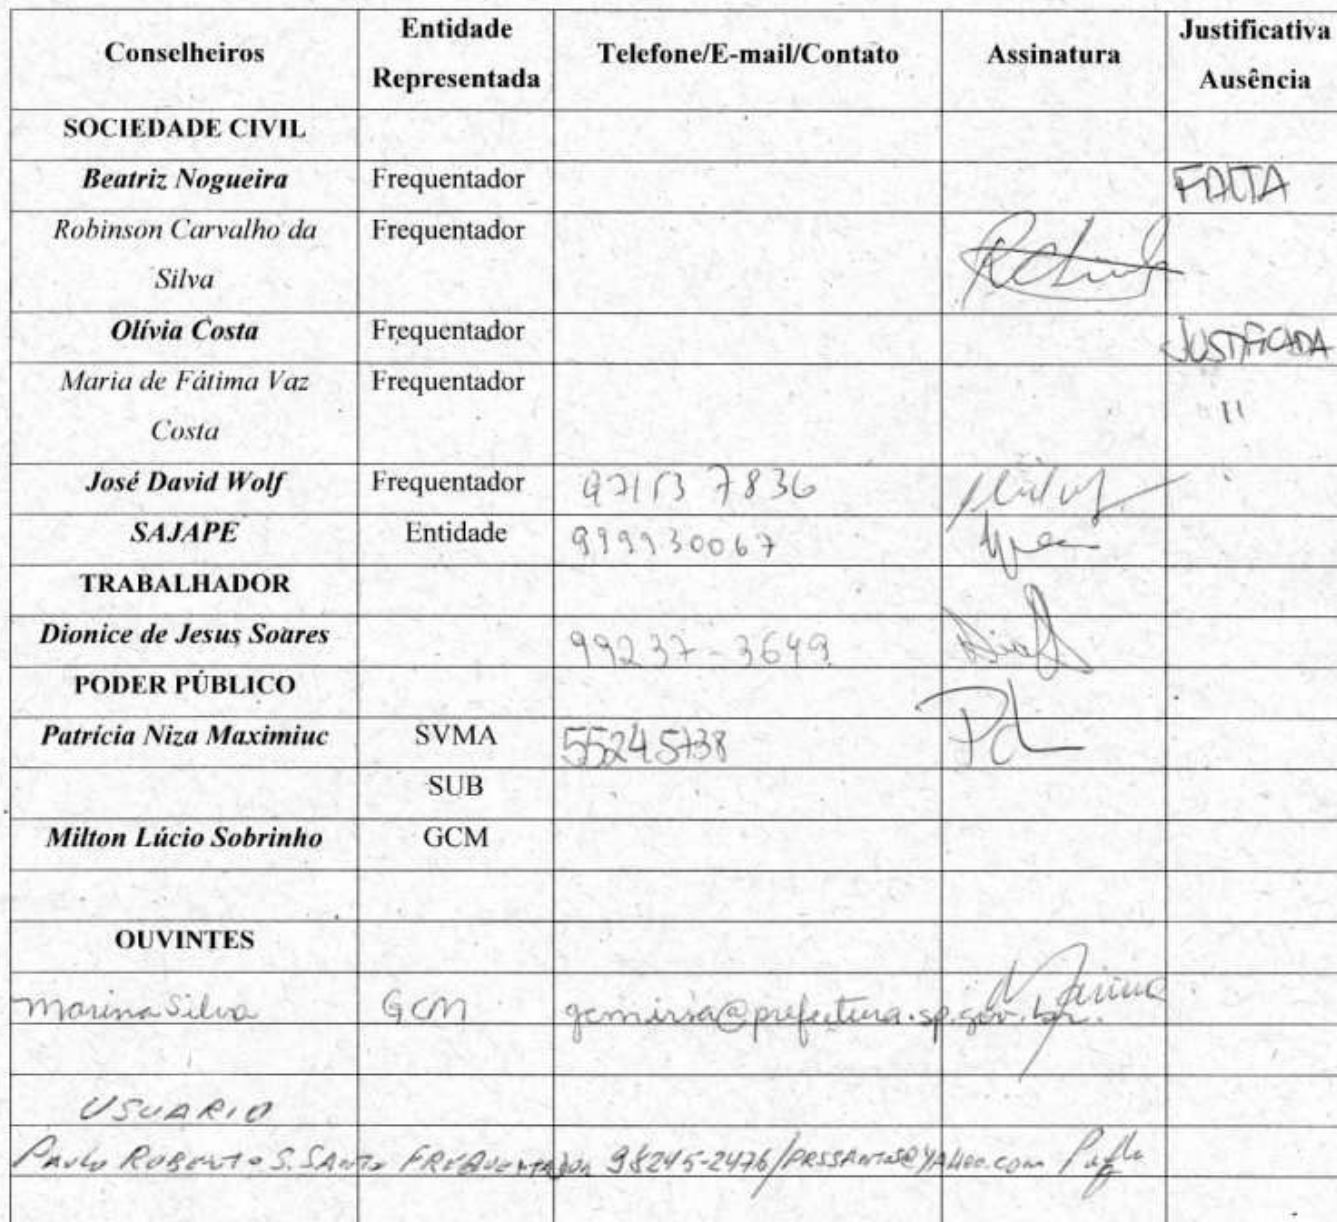 Conselheiros Entidade Representada Telefone/E-mail/Contato Assinatura Justificativa Ausência
SOCIEDADE CIVIL
Beatriz Nogueira Frequentador FALTA
Robinson Carvalho da Silva Frequentador
Olívia Costa Frequentador JUSTIFICADA
Maria de Fátima Vaz Costa Frequentador "
José David Wolf Frequentador 97113 7836
SAJAPE Entidade 999930067
TRABALHADOR
Dionice de Jesus Soares 99237-3649
PODER PÚBLICO
Patrícia Niza Maximiuc SVMA 55245738
SUB
Milton Lúcio Sobrinho GCM
OUVINTES
Marina Silva GCM @prefeitura.sp.gov.br.
USUARIO
Paulo ROBERTO S. SANTOS FREQUENTADOR 98245-2476/PRSSANTOS@YAHOO.COM